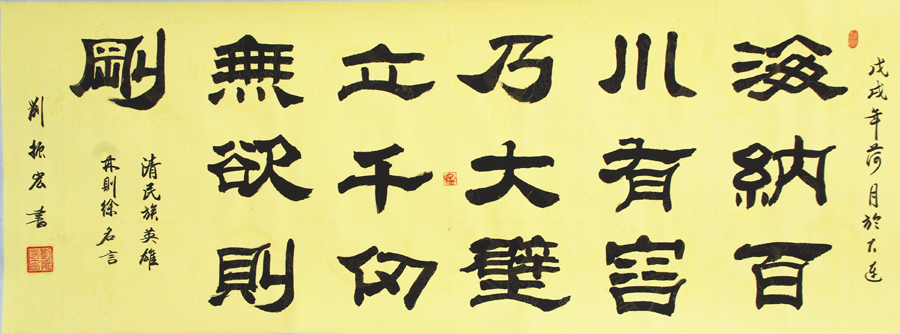 戊戌年荷月於大連
海納百
川有容
乃大壁
立千仞
無欲則
剛
清民族英雄
林則徐名言
劉振宏書